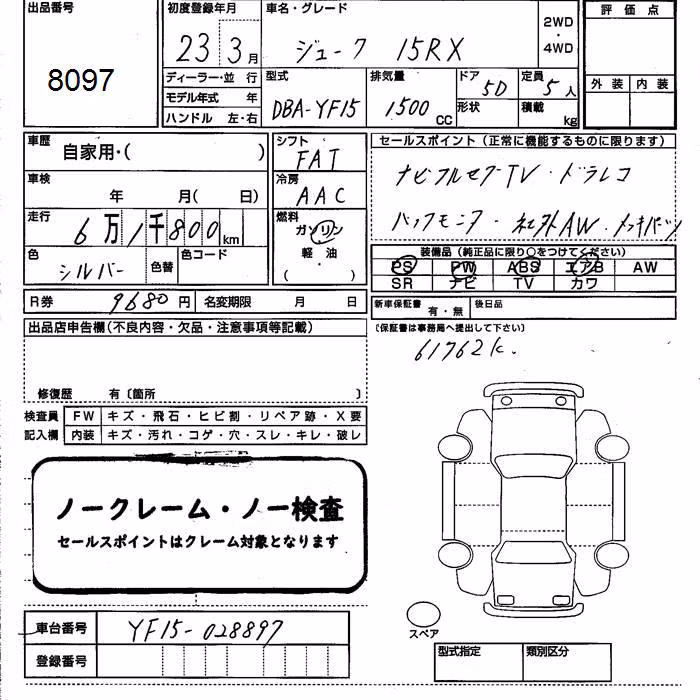 出品番号
8097
初度登録年月
23 3月
車名・グレード
ジューク 15RX
2WD
・
4WD
評価点
外装 内装
ディーラー・並 行
モデル年式 年
ハンドル 左・右
型式
DBA-YF15
排気量
1500 CC
ドア 5D
形状
定員 5人
積載 kg
車歴 自家用・( )
車検
年 月( 日)
走行 6万1千800km
色 シルバー
色替
色コード
シフト
FAT
冷房
AAC
燃料
ガソリン
軽・油
( )
セールスポイント(正常に機能するものに限ります)
ナビフルセグTV・ドラレコ
バックモニター・社外AW・メッキパーツ
装備品(純正品に限り○をつけてください)
PS PW ABS エアB AW
SR ナビ TV カワ
R券 9680円 名変期限 月 日
新車保証書 有・無 後日品
(保証書は事務局へ提出して下さい)
61762k.
出品店申告欄(不良内容・欠品・注意事項等記載)
修復歴 有〔箇所 〕
検査員 FW キズ・飛石・ヒビ割・リペア跡・X要
記入欄 内装 キズ・汚れ・コゲ・穴・スレ・キレ・破レ
ノークレーム・ノー検査
セールスポイントはクレーム対象となります
車台番号 YF15-028897
登録番号
スペア
型式指定 類別区分